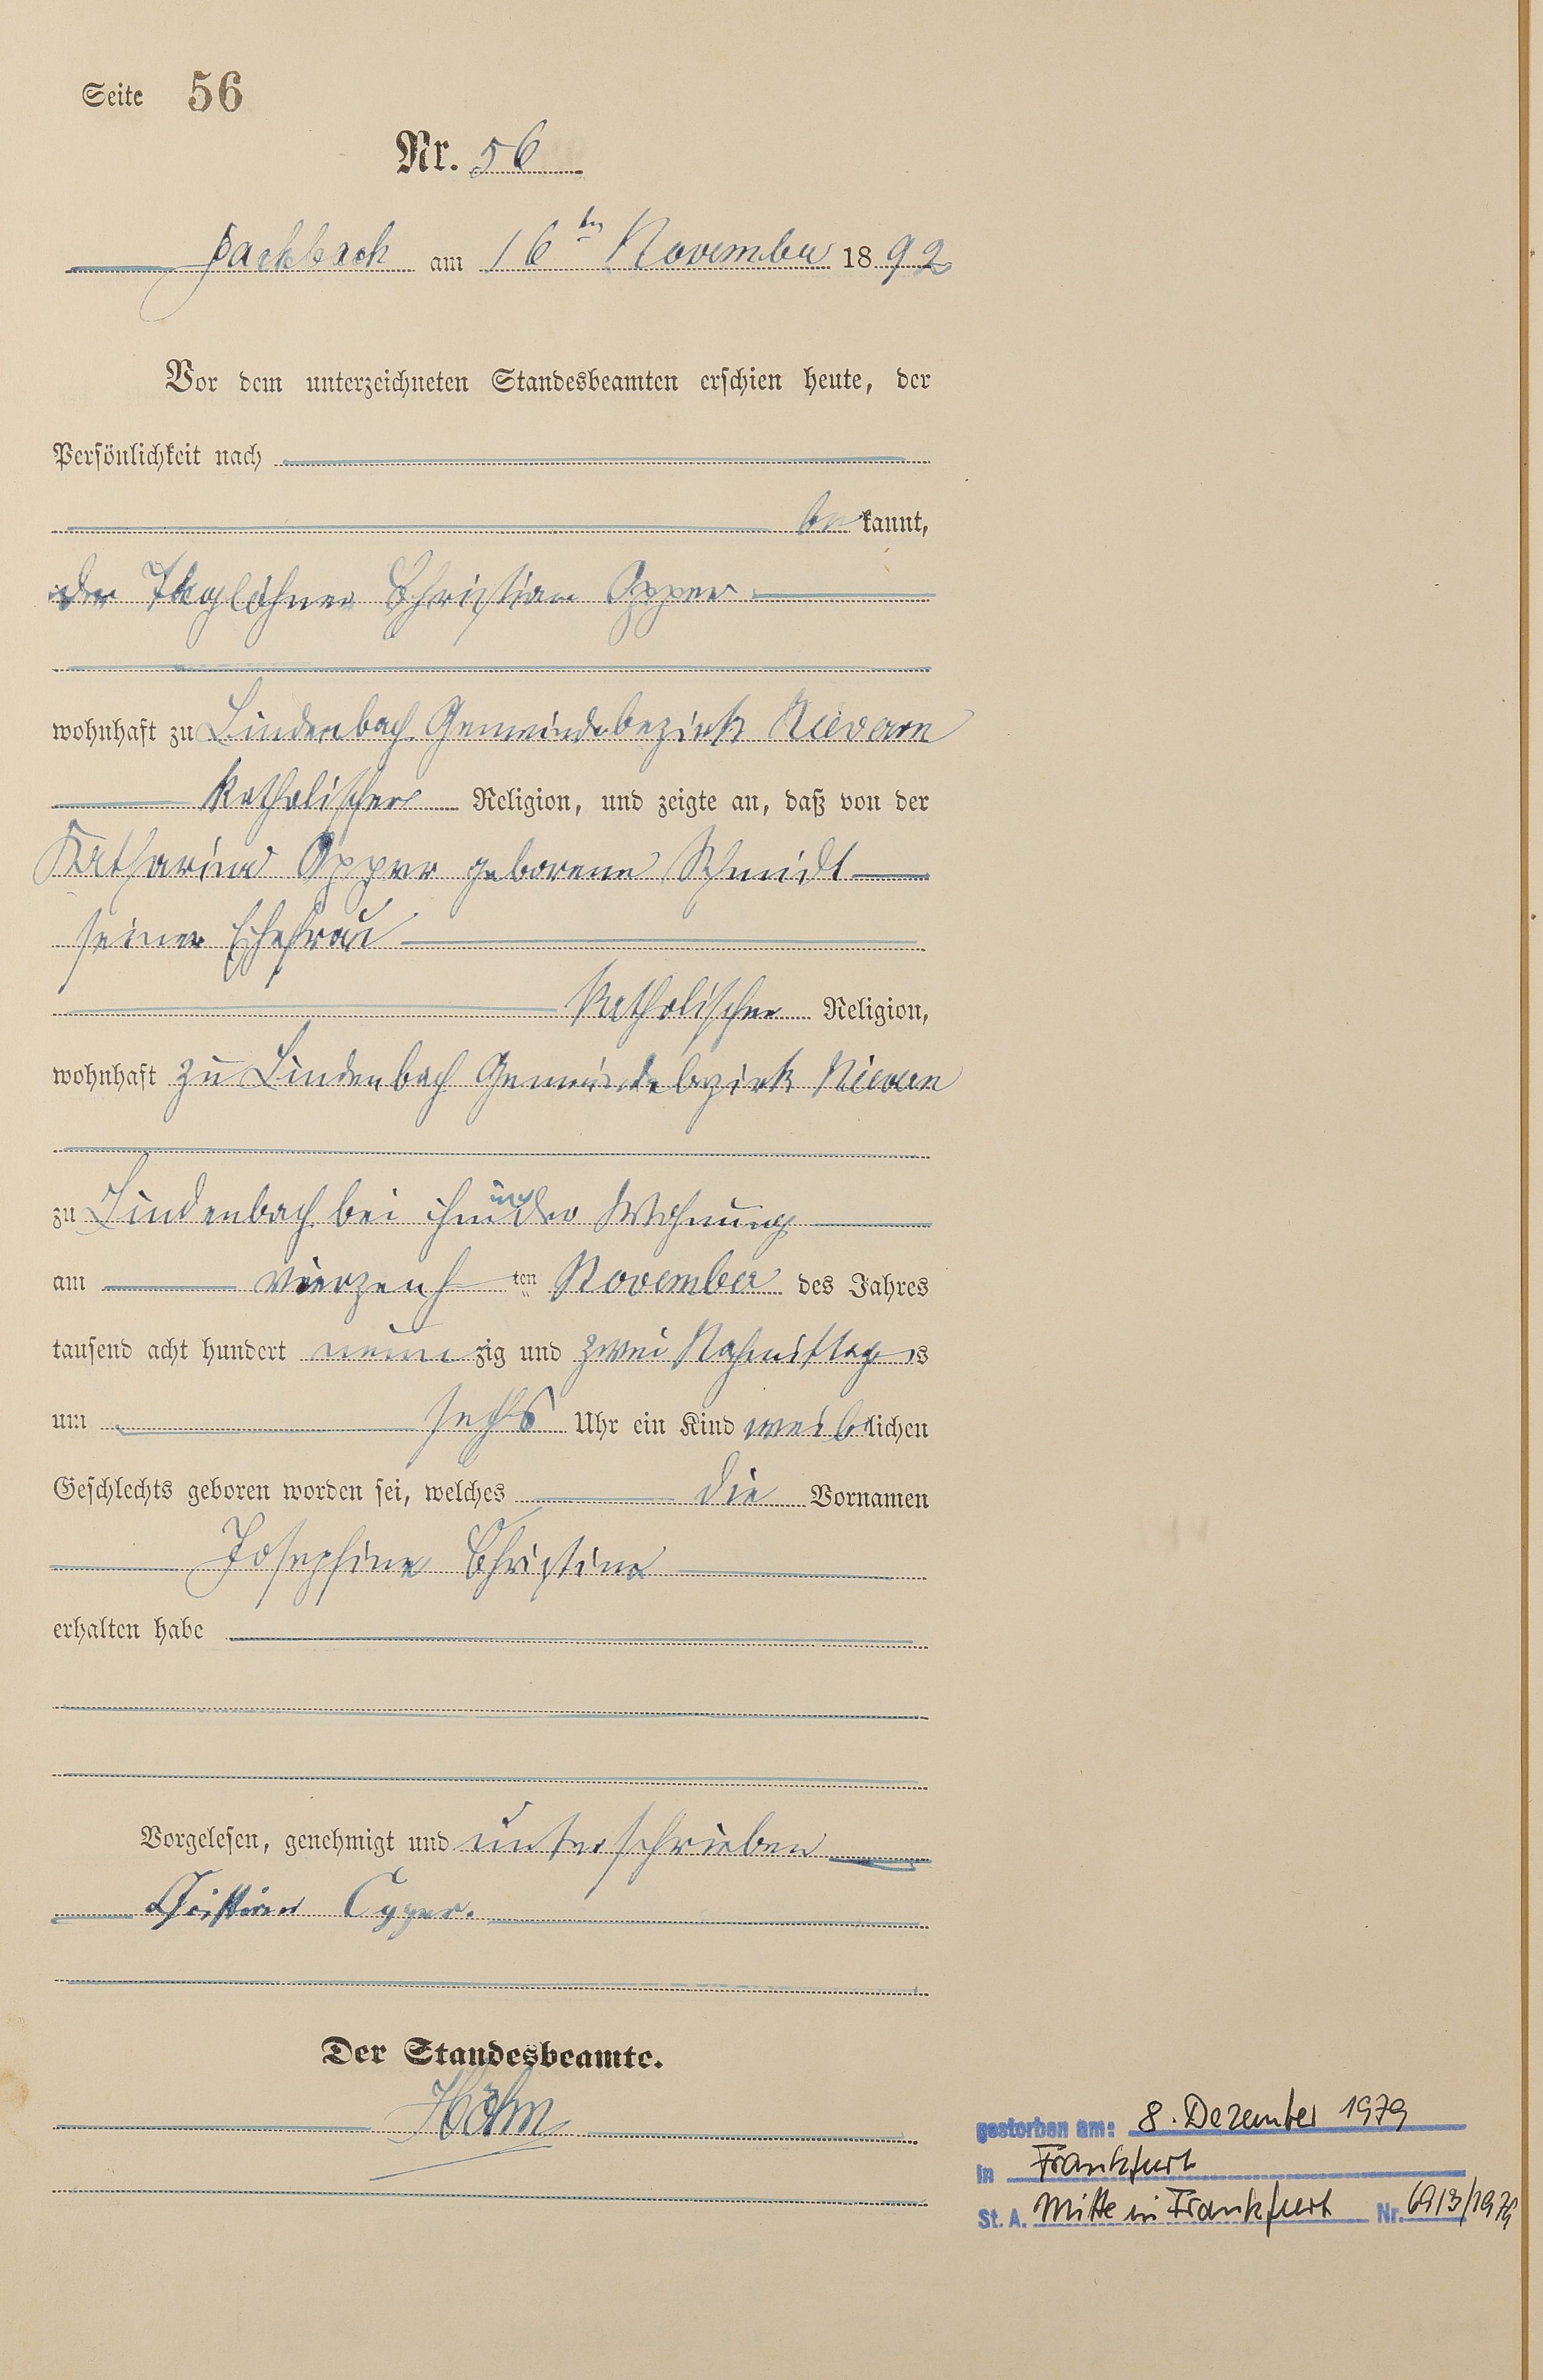 Seite 56
Nr. 56
Fachbach am 16ten November 1892
Vor dem unterzeichneten Standesbeamten erschien heute, der
Persönlichkeit nach
be kannt,
der Taglöhner Christian Opper
wohnhaft zu Lindenbach Gemeindebezirk Nievern
katholischer Religion, und zeigte an, daß von der
Katharina Opper geborene Schmidt
seiner Ehefrau
katholischer Religion,
wohnhaft zu Lindenbach Gemeindebezirk Nievern
zu Lindenbach bei ihm in der Wohnung
am vierzenh ten November des Jahres
tausend acht hundert neun zig und zwei Nachmittags
um sechs Uhr ein Kind weiblichen
Geschlechts geboren worden sei, welches die Vornamen
Josephine Christina
erhalten habe
Vorgelesen, genehmigt und unterschrieben
Christian Opper.
Der Standesbeamte.
gestorben am: 8. Dezember 1979
in Frankfurt
St. A. Mitte in Frankfurt Nr. 6913/1979